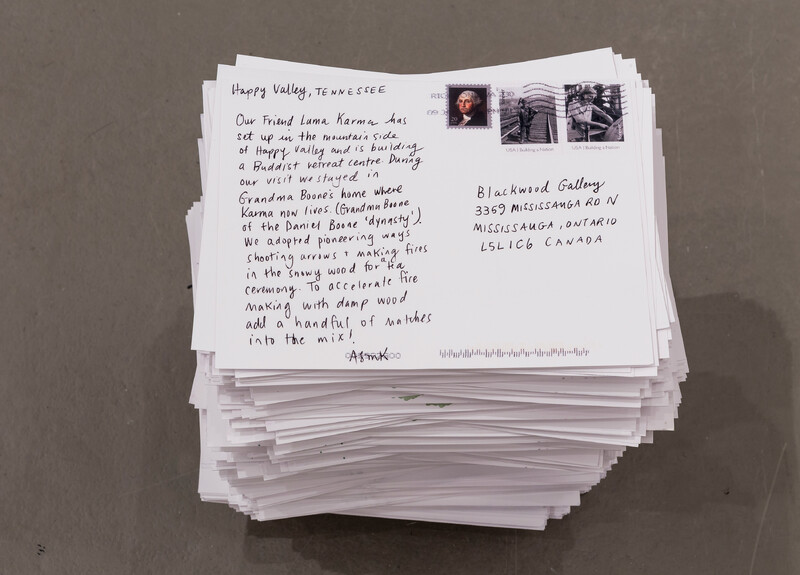 Happy Valley, TENNESSEE
Our Friend Lama Karma has
set up in the mountain side
of Happy Valley and is building
a Buddist retreat centre. During
our visit we stayed in
Grandma Boone's home where
Karma now lives. (Grandma Boone
of the Daniel Boone 'dynasty').
We adopted pioneering ways
shooting arrows + making fires
in the snowy wood for a tea
ceremony. To accelerate fire
making with damp wood
add a handful of matches
into the mix!
USA | Building a Nation
USA | Building a Nation
Blackwood Gallery
3359 MISSISSAUGA RD N
MISSISSAUGA, ONTARIO
L5L1C6 CANADA